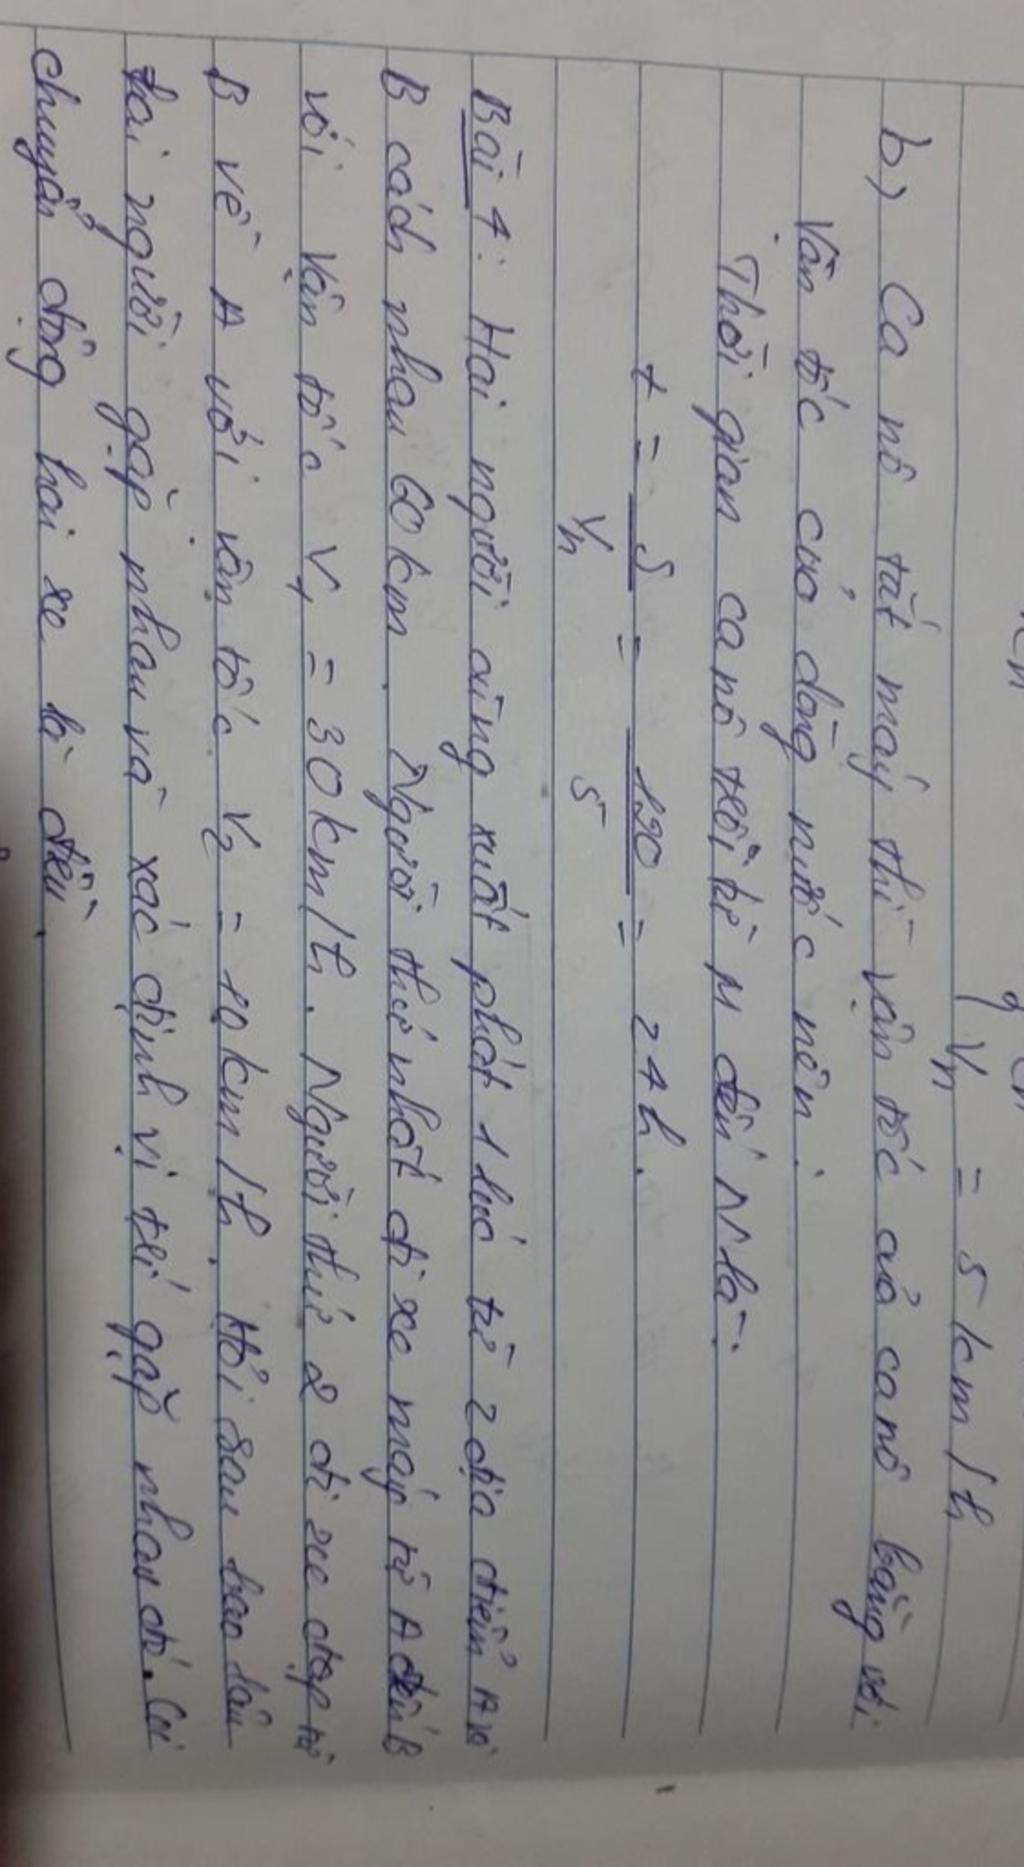 Vn = 5 km/h
b) Ca nô tắt máy thì vận tốc của ca nô bằng với
vận tốc của dòng nước nên:
Thời gian ca nô trôi từ M đến N là:
t = S/Vn = 120/5 = 24h.
Bài 4: Hai người cùng xuất phát 1 lúc từ 2 địa điểm A và
B cách nhau 60km. Người thứ nhất đi xe máy từ A đến B
với vận tốc V1 = 30km/h. Người thứ 2 đi xe đạp từ
B về A với vận tốc V2 = 10km/h. Hỏi sau bao lâu
hai người gặp nhau và xác định vị trí gặp nhau đó. Coi
chuyển động hai xe là đều.